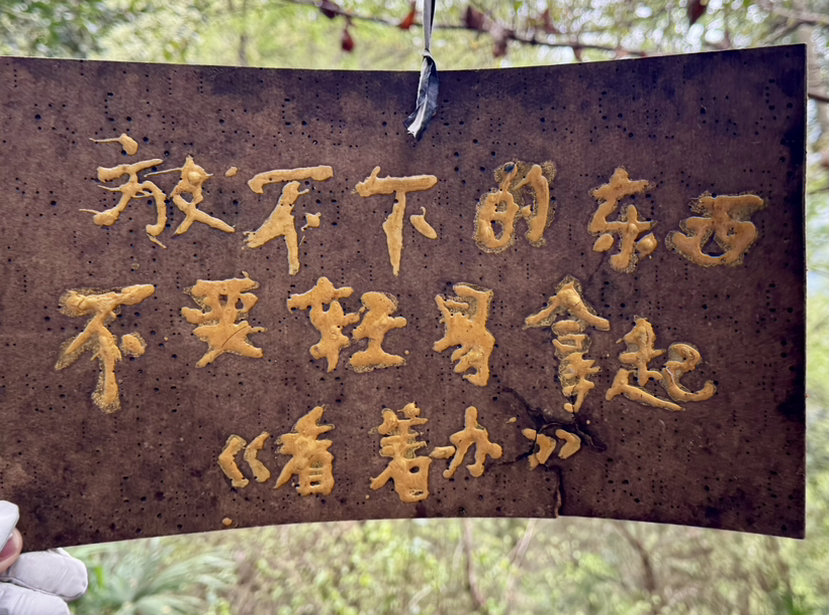 放不下的东西
不要轻易拿起
《看着办》